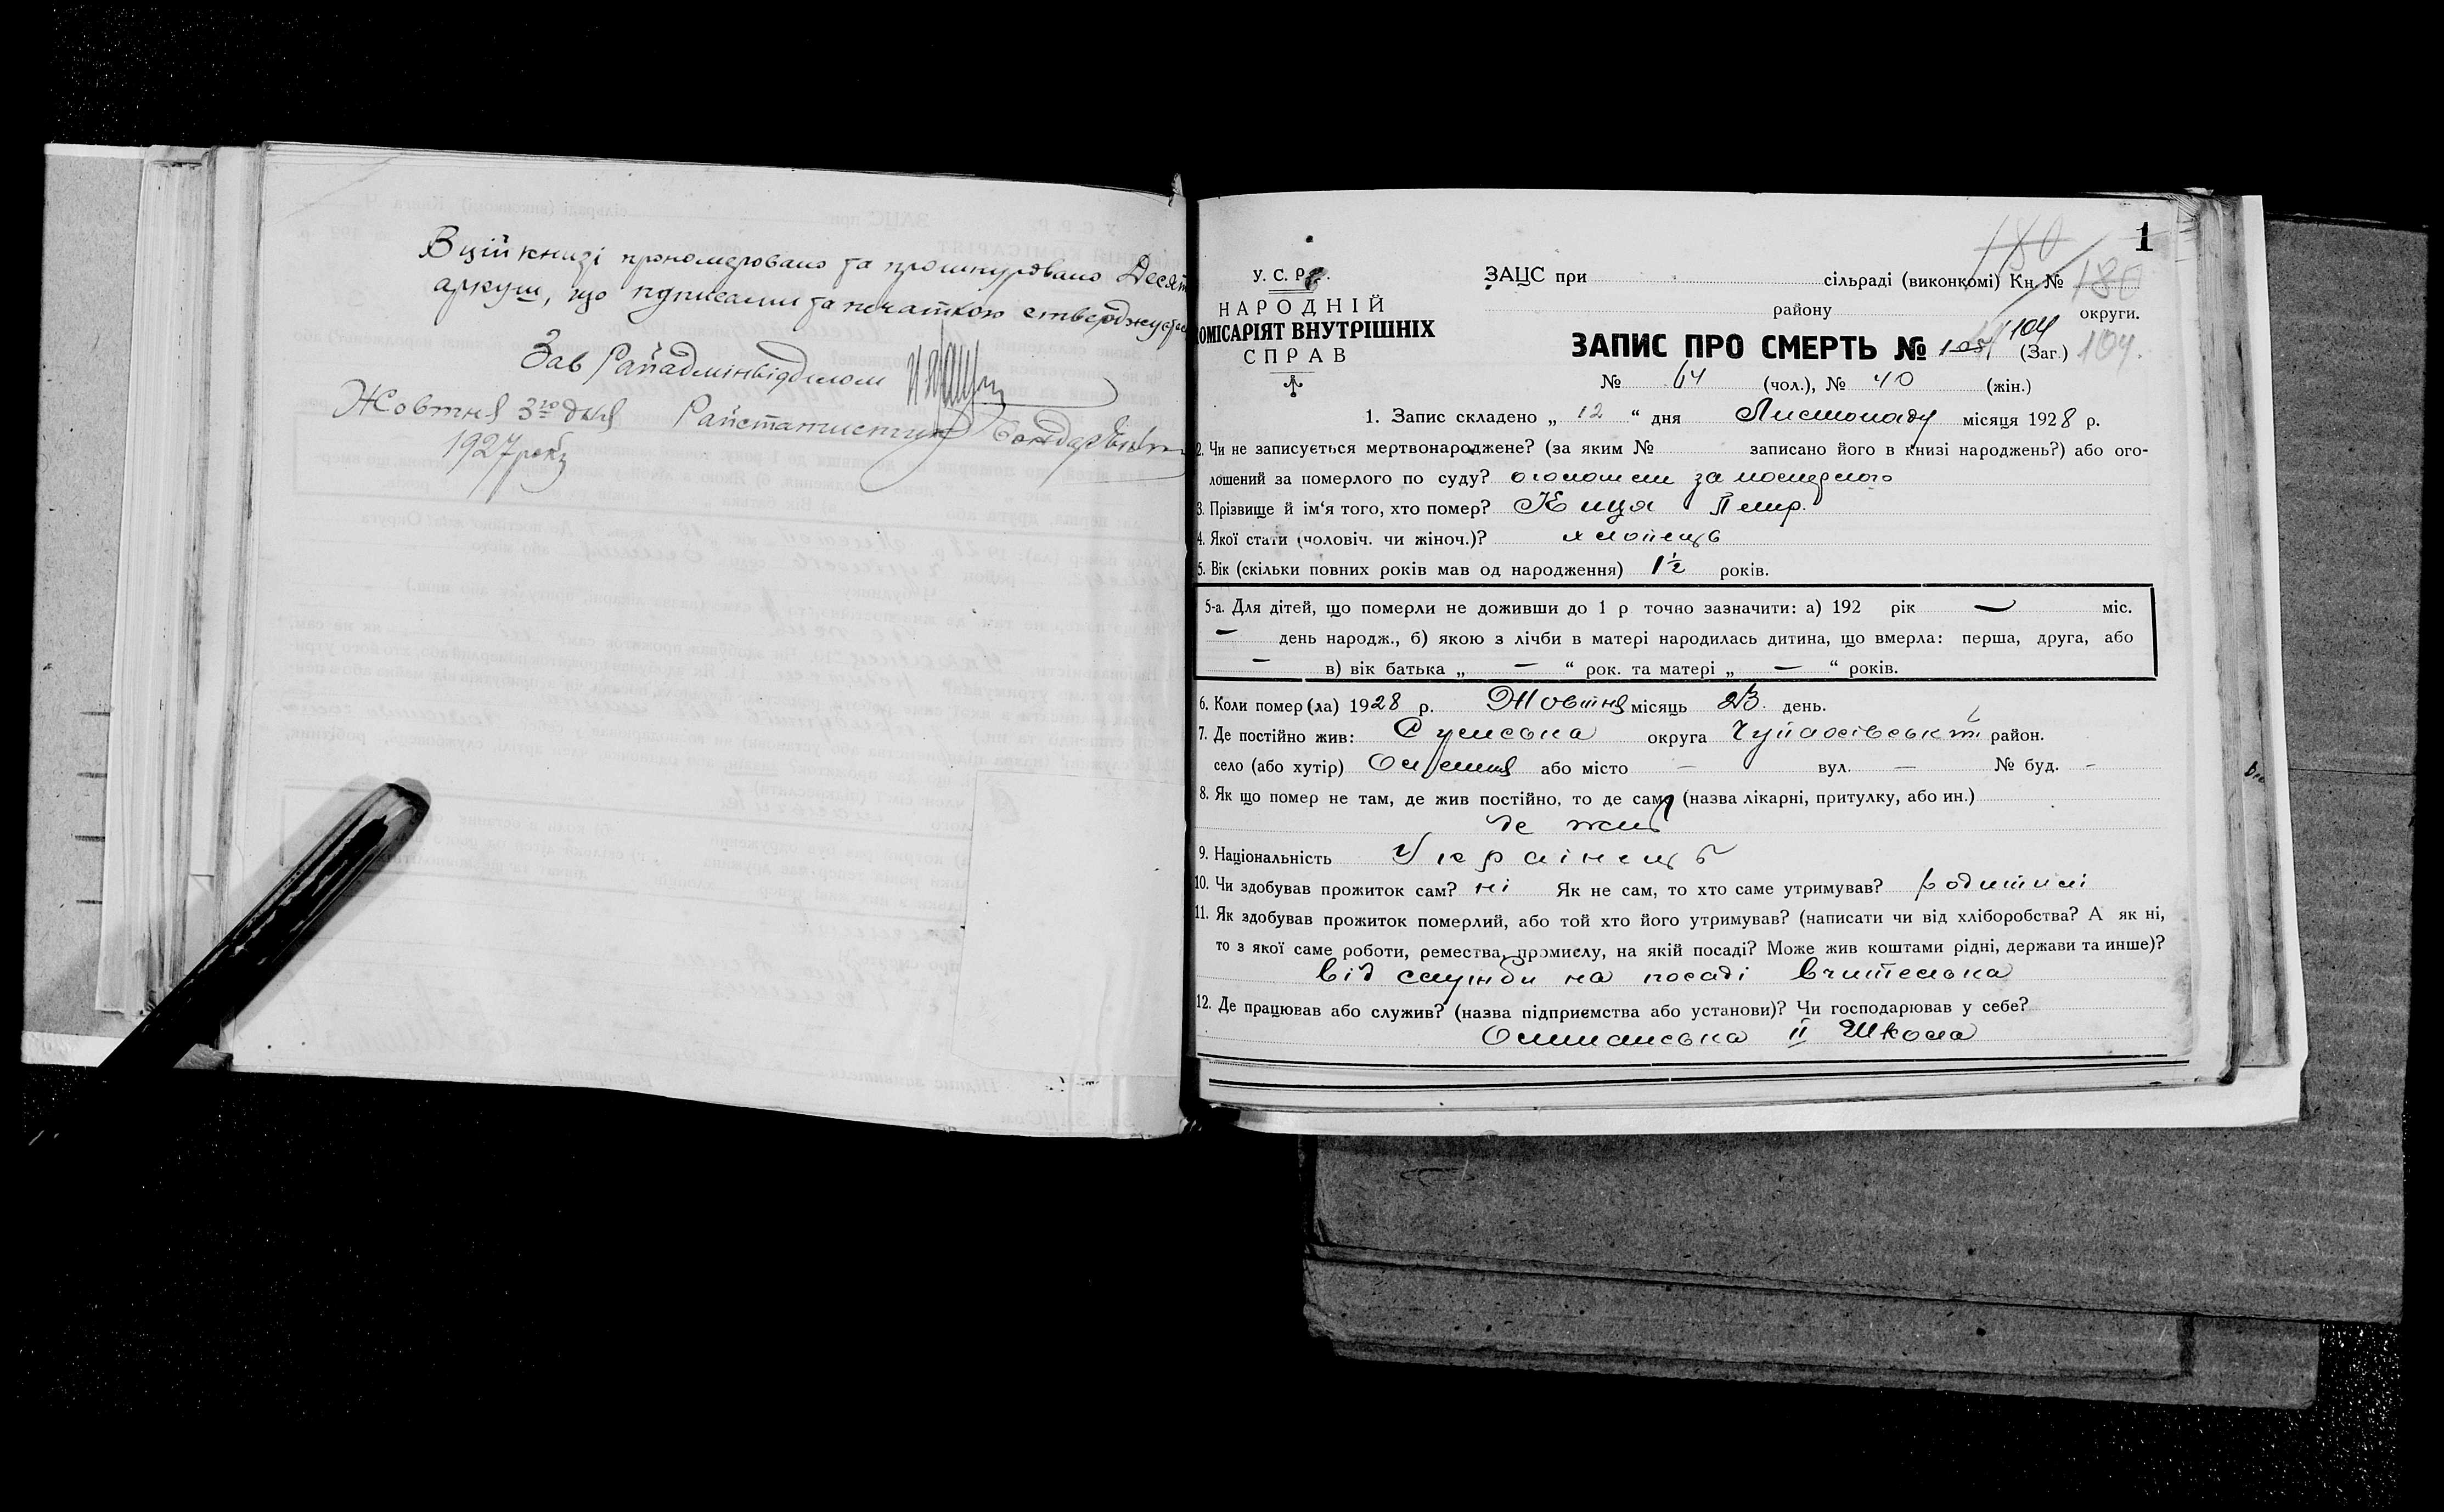 В цій книзі прономеровано та прошнуровано Десят
аркуш, що підписами та печаткою стверджується
Зав Райадмінвідділом
Жовтня 3го дня Райстатистик
1927 року
1
180
У. С. Р. Р.
НАРОДНІЙ
КОМІСАРІЯТ ВНУТРІШНІХ
СПРАВ
ЗАЦС при сільраді (виконкомі) Кн. № 180
району округи.
ЗАПИС ПРО СМЕРТЬ № 104 (Заг.) 104.
№ 64 (чол.), № 40 (жін.)
1. Запис складено „ 12 “ дня Листопаду місяця 1928 р.
2. Чи не записується мертвонароджене? (за яким № записано його в книзі народжень?) або ого-
лошений за померлого по суду?
3. Прізвище й ім‘я того, хто помер? Киця Петр.
4. Якої стати (чоловіч. чи жіноч.)? хлопець
5. Вік (скільки повних років мав од народження) 1½ років.
5-а. Для дітей, що померли не доживши до 1 р точно зазначити: а) 192 рік — міс.
— день народж., б) якою з лічби в матері народилась дитина, що вмерла: перша, друга, або
— в) вік батька „ — “ рок. та матері „ — “ років.
6. Коли помер (ла) 1928 р. Жовтня місяць 23. день.
7. Де постійно жив: Сумська округа район.
село (або хутір) або місто — вул. — № буд. -
8. Як що помер не там, де жив постійно, то де саме (назва лікарні, притулку, або ин.)
де жив
9. Національність Українець
10. Чи здобував прожиток сам? ні Як не сам, то хто саме утримував? родителі
11. Як здобував прожиток померлий, або той хто його утримував? (написати чи від хліборобства? А як ні,
то з якої саме роботи, ремества, промислу, на якій посаді? Може жив коштами рідні, держави та инше)?
від служби на посаді вчителька
12. Де працював або служив? (назва підприємства або установи)? Чи господарював у себе?
Олшанська II Школа